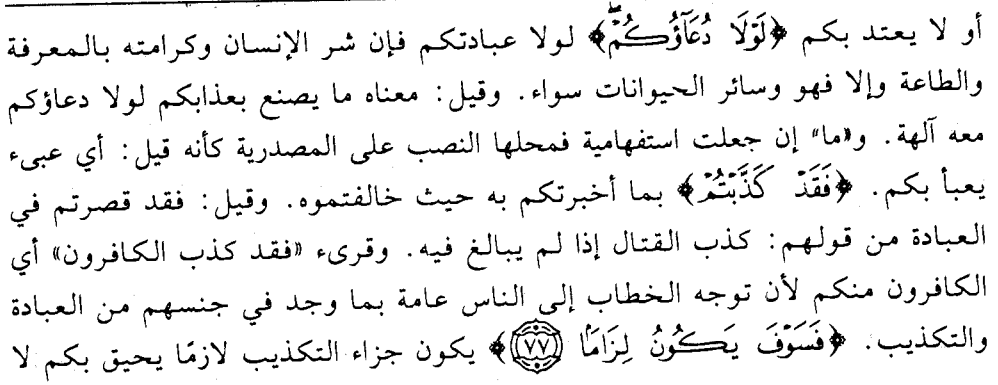 أو لا يعتد بكم ﴿لَوْلَا دُعَآؤُكُمْۖ﴾ لولا عبادتكم فإن شر الإنسان وكرامته بالمعرفة
والطاعة وإلا فهو وسائر الحيوانات سواء. وقيل: معناه ما يصنع بعذابكم لولا دعاؤكم
معه آلهة. و«ما» إن جعلت استفهامية فمحلها النصب على المصدرية كأنه قيل: أي عبىء
يعبأ بكم. ﴿فَقَدْ كَذَّبْتُمْ﴾ بما أخبرتكم به حيث خالفتموه. وقيل: فقد قصرتم في
العبادة من قولهم: كذب القتال إذا لم يبالغ فيه. وقرىء «فقد كذب الكافرون» أي
الكافرون منكم لأن توجه الخطاب إلى الناس عامة بما وجد في جنسهم من العبادة
والتكذيب. ﴿فَسَوْفَ يَكُونُ لِزَامًا ۝٧٧﴾ يكون جزاء التكذيب لازمًا يحيق بكم لا